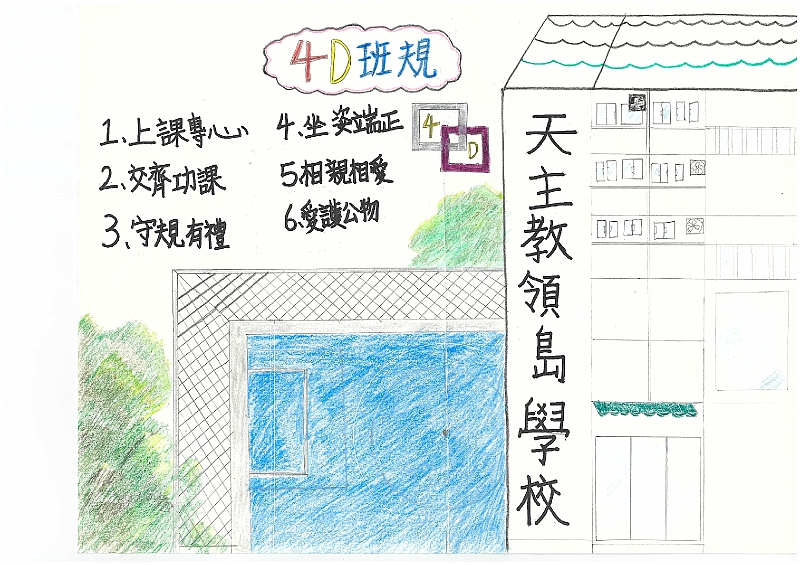 4D班規
1、上課專心
2、交齊功課
3、守規有禮
4、坐姿端正
5相親相愛
6、愛護公物
4
D
天主教領島學校